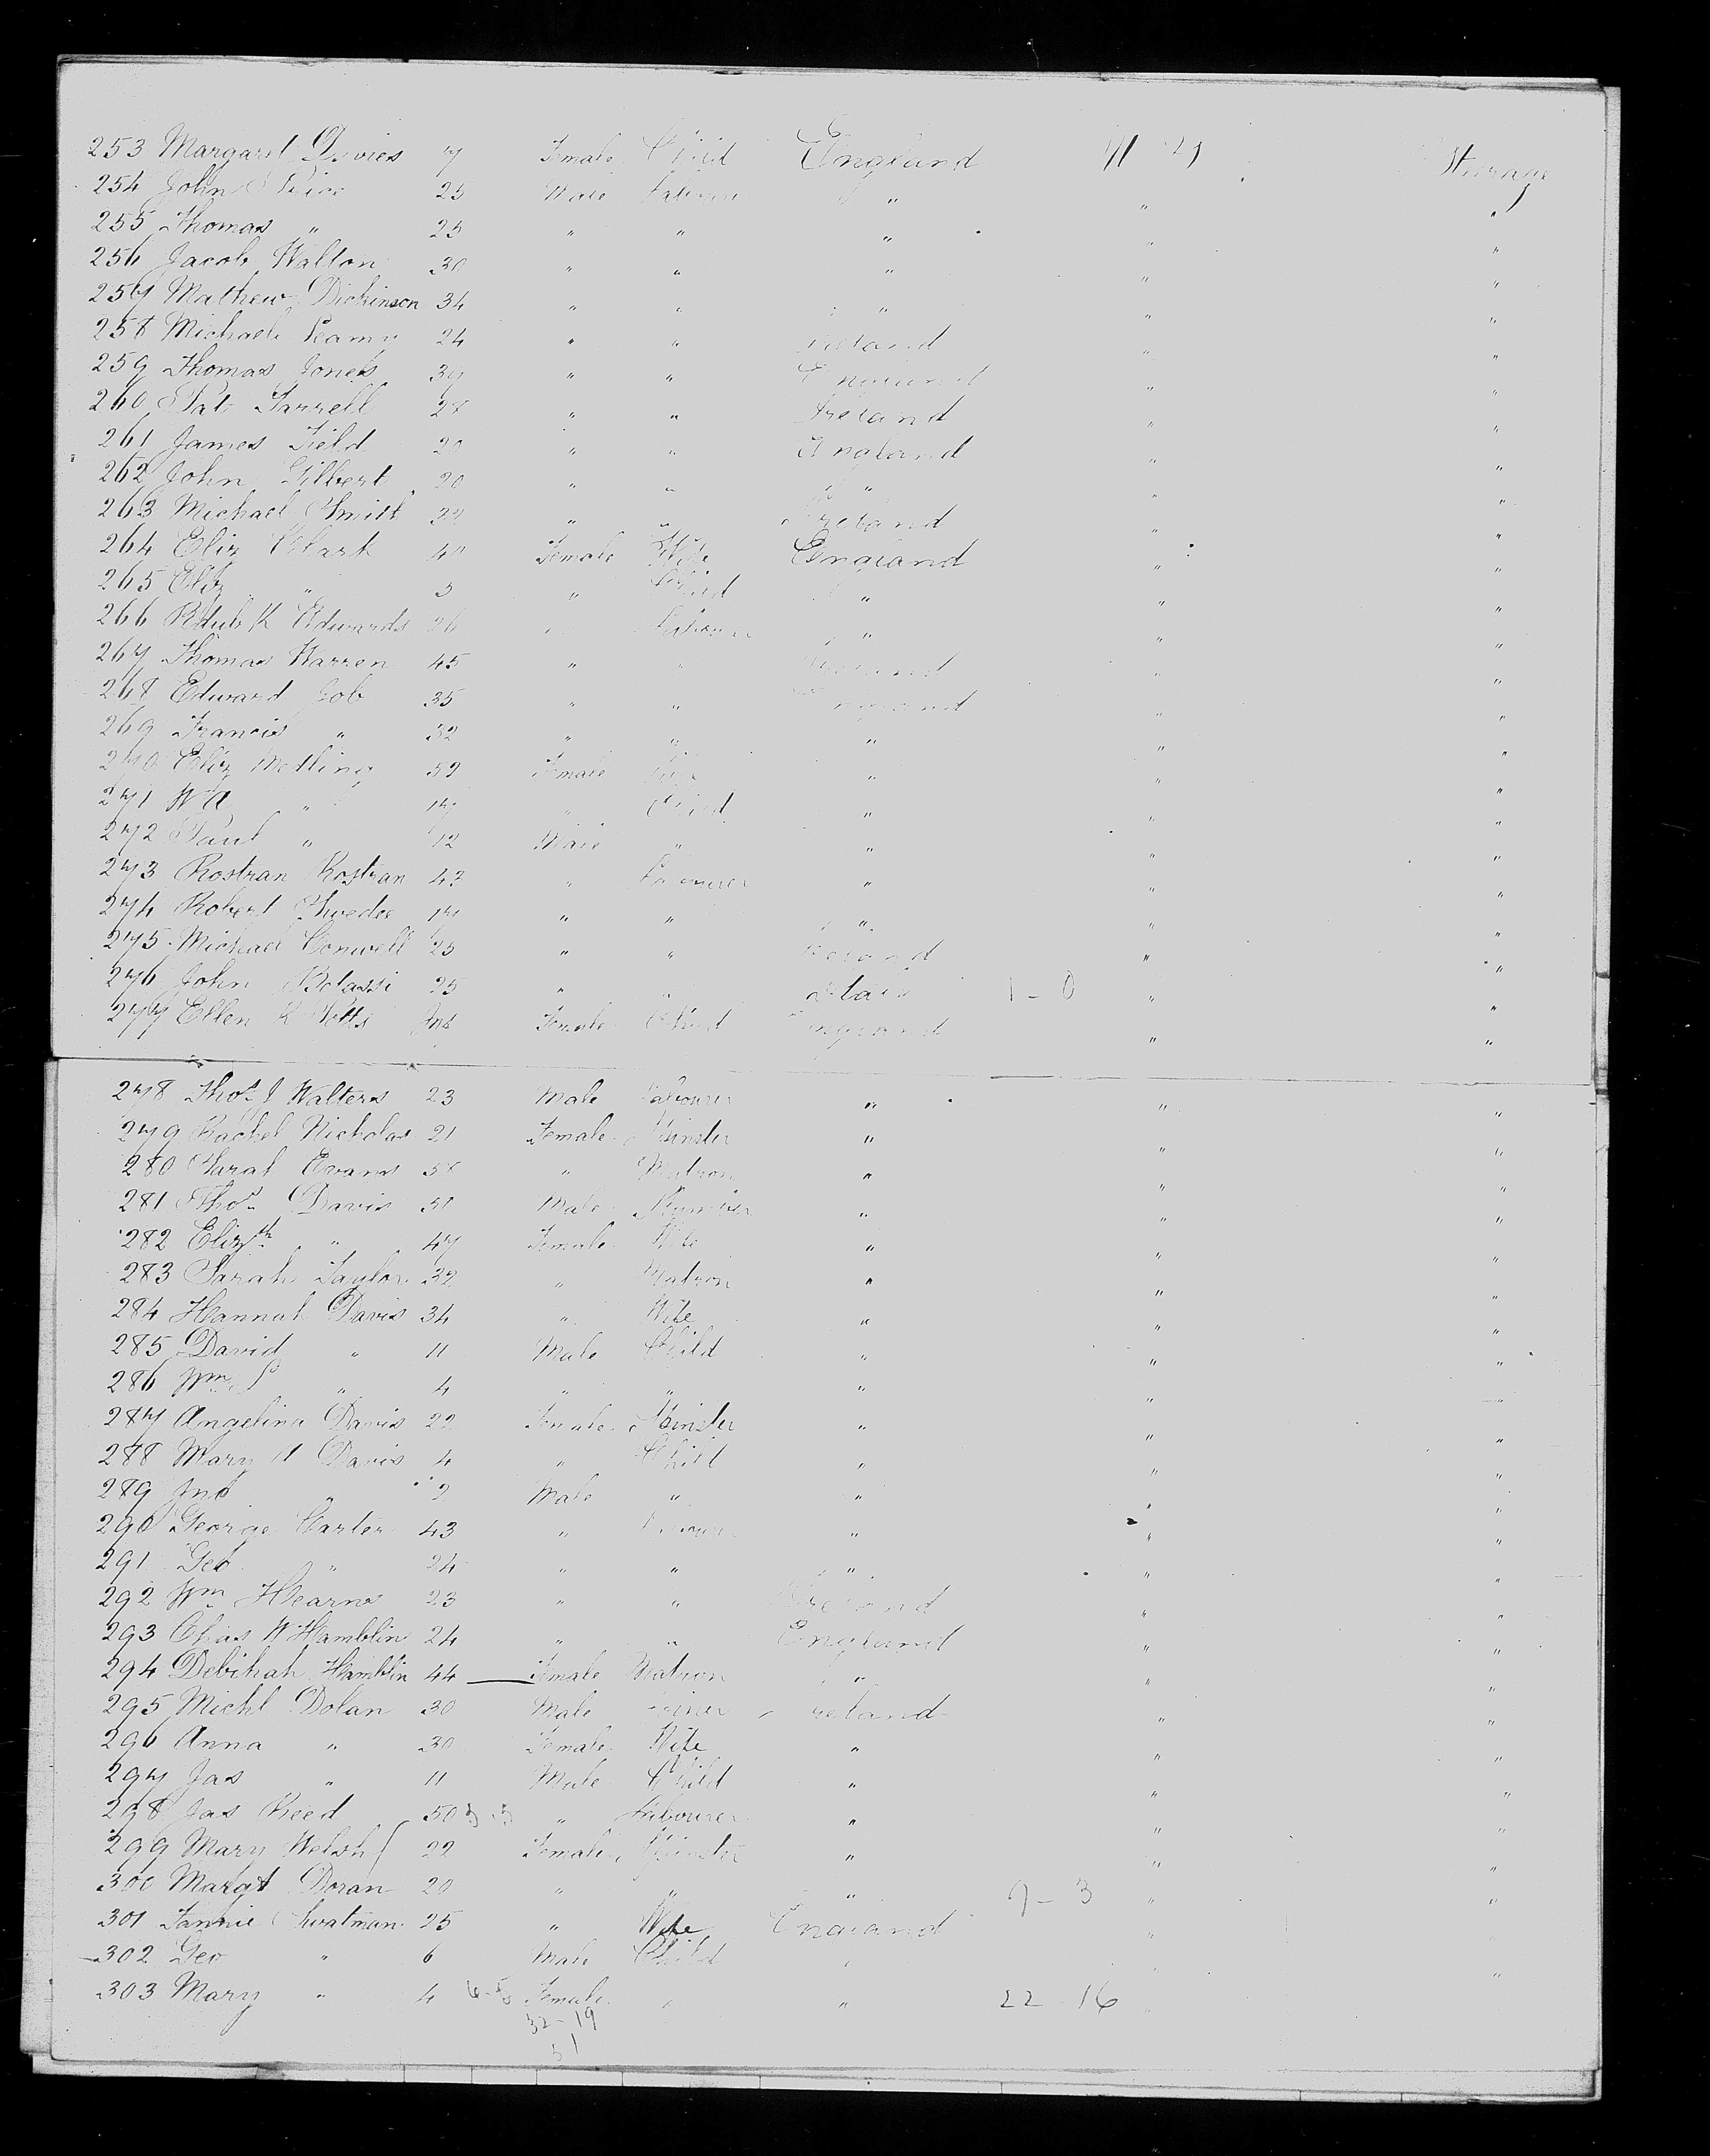 253 Margaret Davies 7 Female Child England Steerage
254 John Price 25 Male Labourer " " "
255 Thomas " 25 " " " " "
256 Jacob Walton 30 " " " " "
257 Mathew Dickinson 34 " " " " "
258 Michael 24 " " Ireland " "
259 Thomas Jones " " England " "
260 Pat Farrell 28 " " Ireland " "
261 James Field 20 " " England " "
262 John Gilbert 20 " " " " "
263 Michael Smith " " Ireland " "
264 Eliz Clark 40 Female Wife England " "
265 Eliz " 3 " Child " " "
266 Edwards 26 " Labourer " " "
267 Thomas Warren 45 " " Ireland " "
268 Edward Job 35 " " England " "
269 Francis " 32 " " " " "
270 Eliz Medling 52 Female " " "
271 " 17 " Child " " "
272 Paul " 12 Male " " " "
273 Rostran Rostran 42 " Labourer " " "
274 Robert 17 " " " " "
275 Michael Conwell 25 " " Ireland " "
276 John 25 " " 1 - 0 " "
277 Ellen K Potts Inf Female Child England " "
278 Thos J Walters 23 Male Labourer " " "
279 Rachel Nicholas 21 Female Spinster " " "
280 Sarah Evans 58 " Matron " " "
281 Thos Davis 51 Male Plumber " " "
282 Elizth " 47 Female Wife " " "
283 Sarah Taylor 32 " Matron " " "
284 Hannah Davis 34 " Wife " " "
285 David " 11 Male Child " " "
286 Wm S " 4 " " " " "
287 Angelina Davis 22 Female Spinster " " "
288 Mary A Davis 4 " Child " " "
289 Jno " 2 Male " " " "
290 George Carter 43 " Labourer " " "
291 Geo " 24 " " " " "
292 Wm Hearns 23 " " Ireland " "
293 Chas W Hamblin 24 " " England " "
294 Debihah Hamblin 44 Female Matron " " "
295 Michl Dolan 30 Male Miner Ireland " "
296 Anna " 30 Female Wife " " "
297 Jas " 11 Male Child " " "
298 Jas Reed 50 " Labourer " " "
299 Mary Welsh 22 Female Spinster " " "
300 Margt Doran 20 " " " 9 - 3 " "
301 Fannie Swatman 25 " Wife England " "
302 Geo " 6 Male Child " " "
303 Mary " 4 6-5 Female " " 22 - 16 "
32-19
51